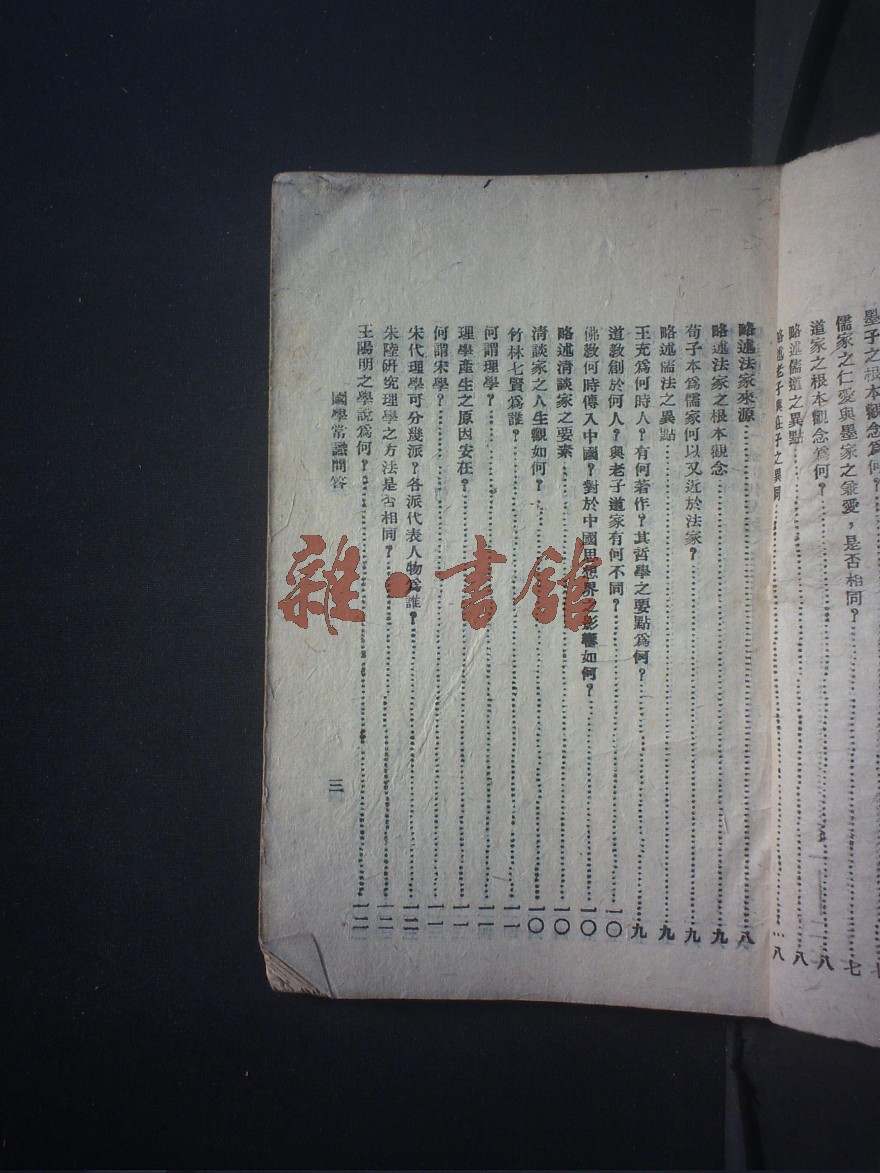 墨子之根本觀念為何?
儒家之仁愛與墨家之兼愛,是否相同?……七
道家之根本觀念為何?……八
略述儒道之異點……八
略述老子與莊子之異同……八
略述法家來源……八
略述法家之根本觀念……九
荀子本為儒家何以又近於法家?……九
略述儒法之異點……九
王充為何時人?有何著作?其哲學之要點為何?……九
道教創於何人?與老子道家有何不同?……一〇
佛教何時傳入中國?對於中國思想界之影響如何?……一〇
略述清談家之要素……一〇
清談家之人生觀如何?……一〇
竹林七賢為誰?……一一
何謂理學?……一一
理學產生之原因安在?……一一
何謂宋學?……一一
宋代理學可分幾派?各派代表人物為誰?……一二
朱陸研究理學之方法是否相同?……一二
王陽明之學說為何?……一二
國學常識問答
三
雜·書館